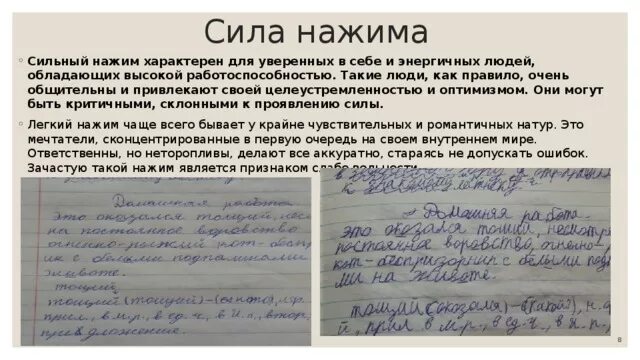 Сила нажима
Сильный нажим характерен для уверенных в себе и энергичных людей,
обладающих высокой работоспособностью. Такие люди, как правило, очень
общительны и привлекают своей целеустремленностью и оптимизмом. Они могут
быть критичными, склонными к проявлению силы.
Легкий нажим чаще всего бывает у крайне чувствительных и романтичных натур. Это
мечтатели, сконцентрированные в первую очередь на своем внутреннем мире.
Ответственны, но неторопливы, делают все аккуратно, стараясь не допускать ошибок.
Зачастую такой нажим является признаком
Домашняя работа
Это оказался тощий,
на постоянное воровство
огненно-рыжий кот-
ик с белыми подпалинами
животе.
тощий
тощий (тощий)-
прил., в м.р., в ед.ч., в И.п.,
предложение.
Домашняя работа.
это оказался тощий,
постоянное воровство, огненно-
кот-беспризорник с белыми
ми на животе.
тощий (оказался)-(какой),
прил в м.р., в ед.ч., в
8